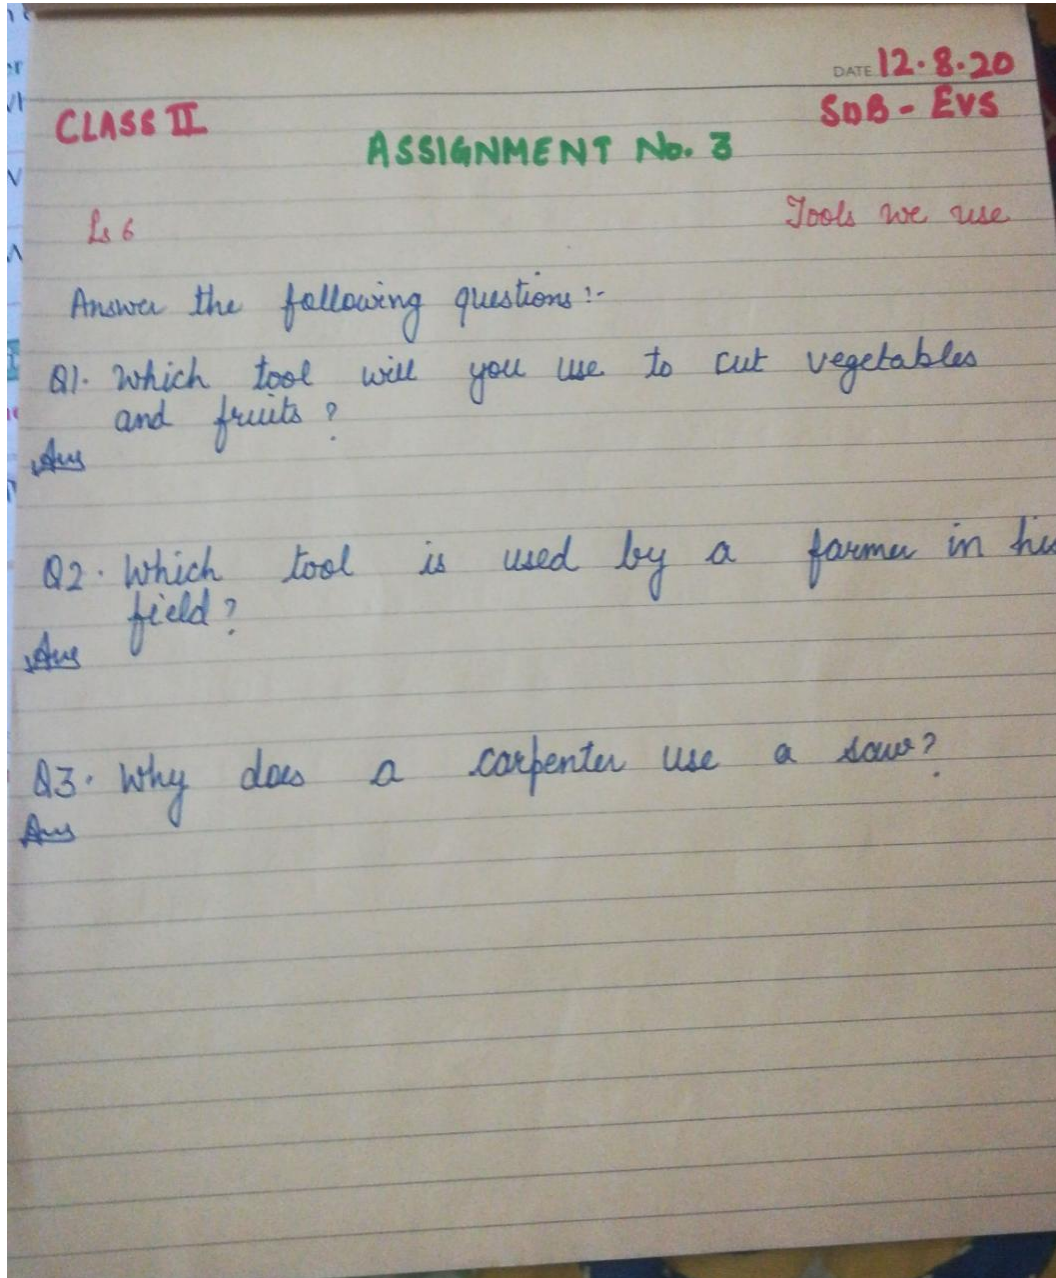 DATE 12.8.20
CLASS II
SUB - EVS
ASSIGNMENT No. 3
Ls 6
Tools we use
Answer the following questions :-
Q1. Which tool will you use to cut vegetables
and fruits ?
Ans
Q2. Which tool is used by a farmer in his
field ?
Ans
Q3. Why does a carpenter use a saw ?
Ans